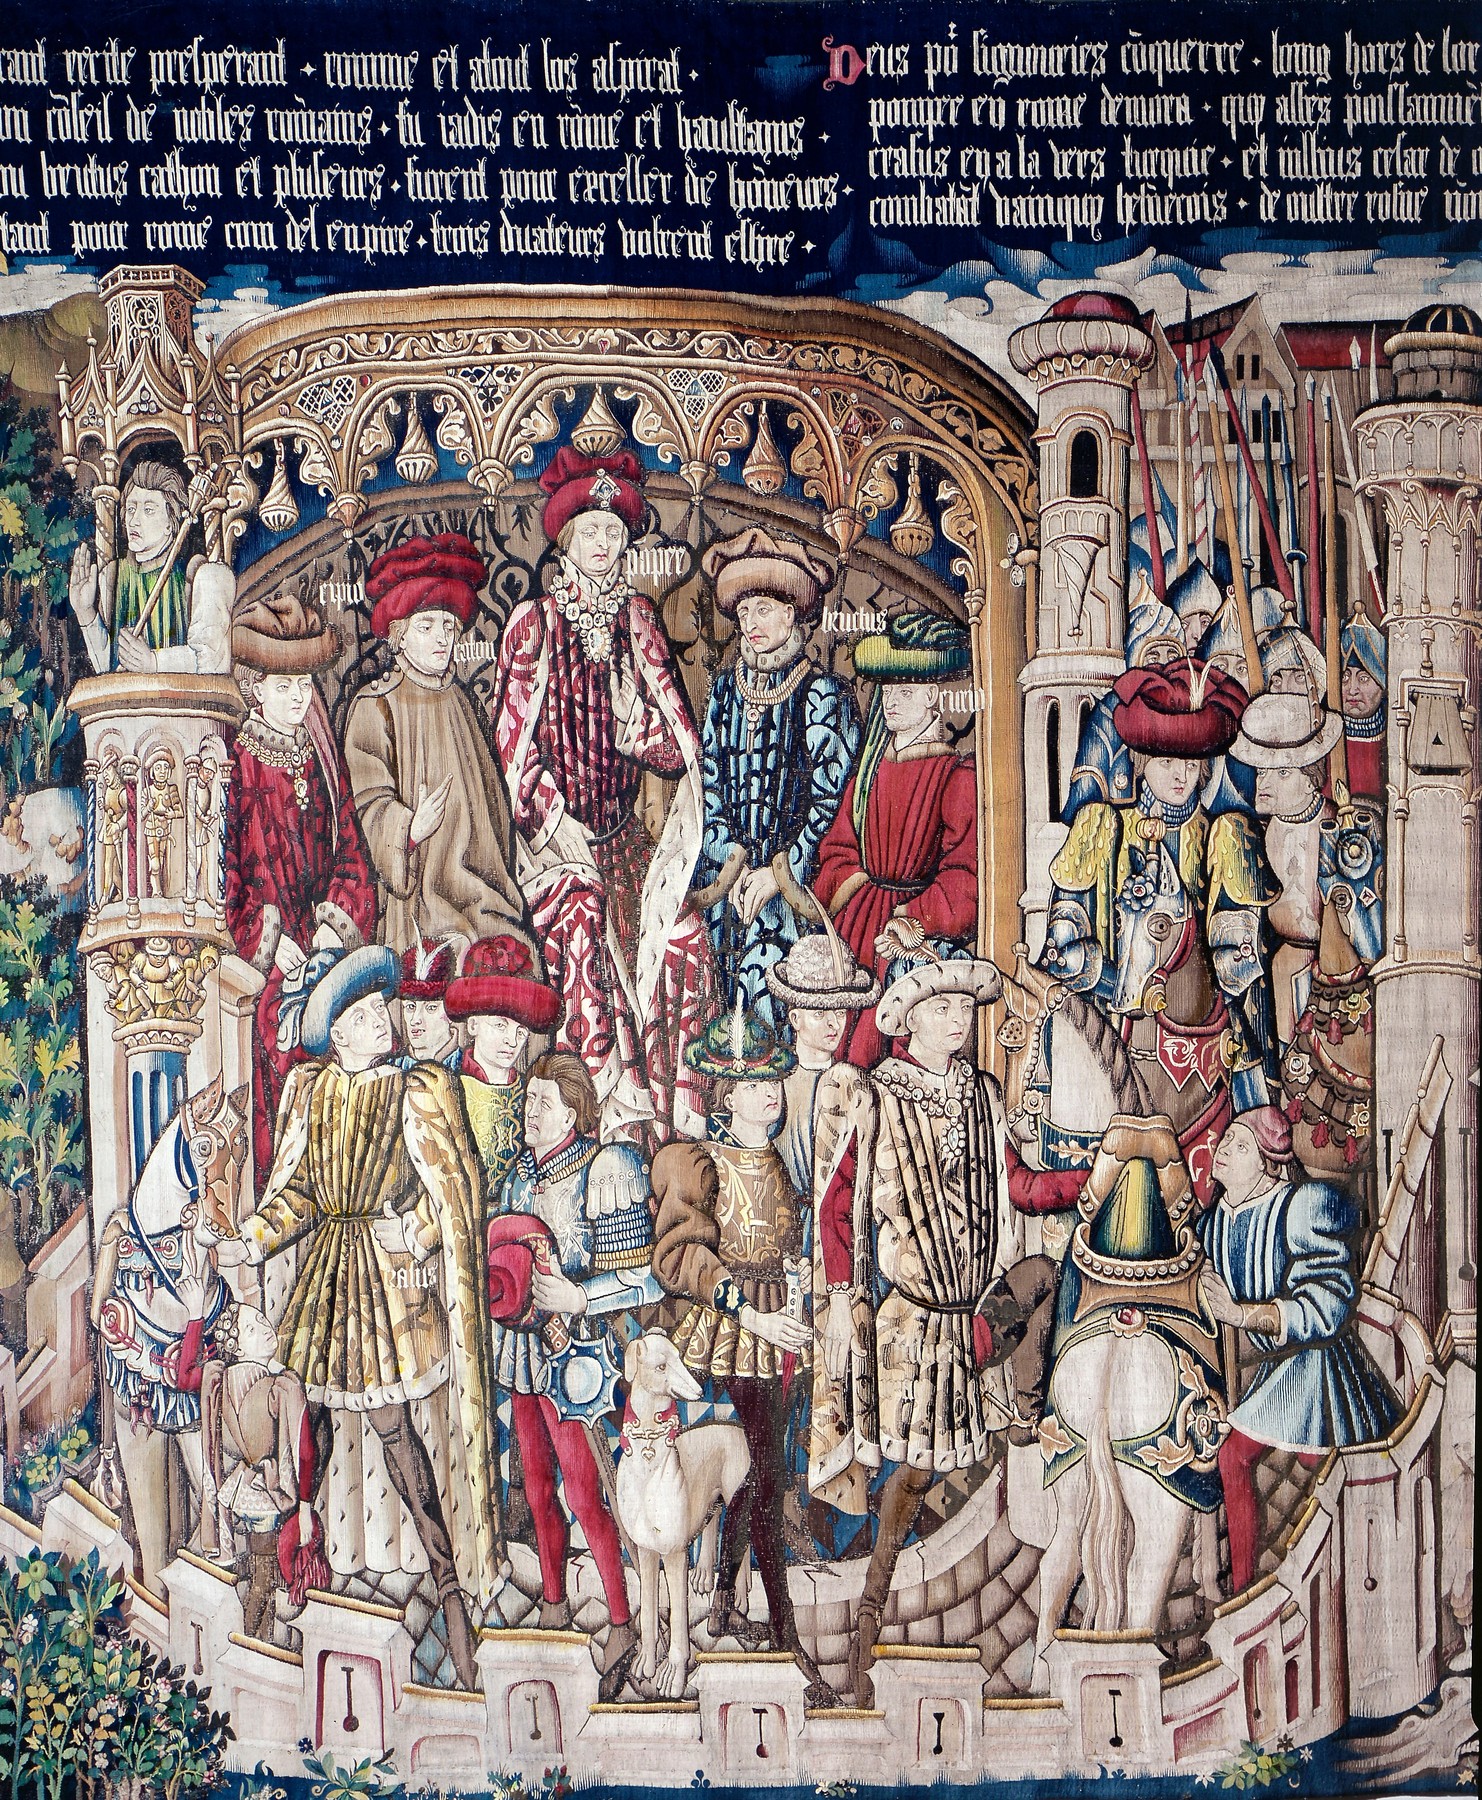 rant rerile presperant · romme et atout los aspirat ·
conseil de nobles romains · tu iadis en rome et haultains ·
brutus cathon et pluseurs · furent pour exceller de honeurs ·
pour rome com del enpire · trois duateurs volrent eslire ·
Deus por signouries coquerre · loing hors de
pompee en rome demora · quy asses poissamment
crasus en a la vers turquie · et iulius cesar de
combatat vainquy heluecois · de oultre rosne
scipio
caton
pompee
brutus
curio
crasus